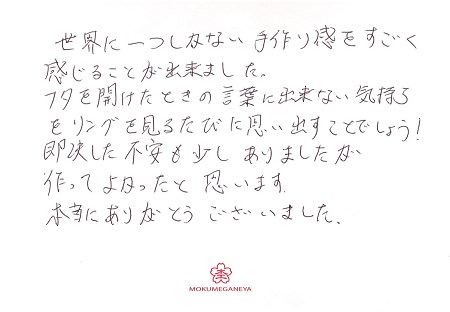 世界に一つしかない手作り感をすごく
感じることが出来ました。
フタを開けたときの言葉に出来ない気持ち
をリングを見るたびに思い出すことでしょう!
即決した不安も少しありましたが
作ってよかったと思います
本当にありがとうございました。
MOKUMEGANEYA